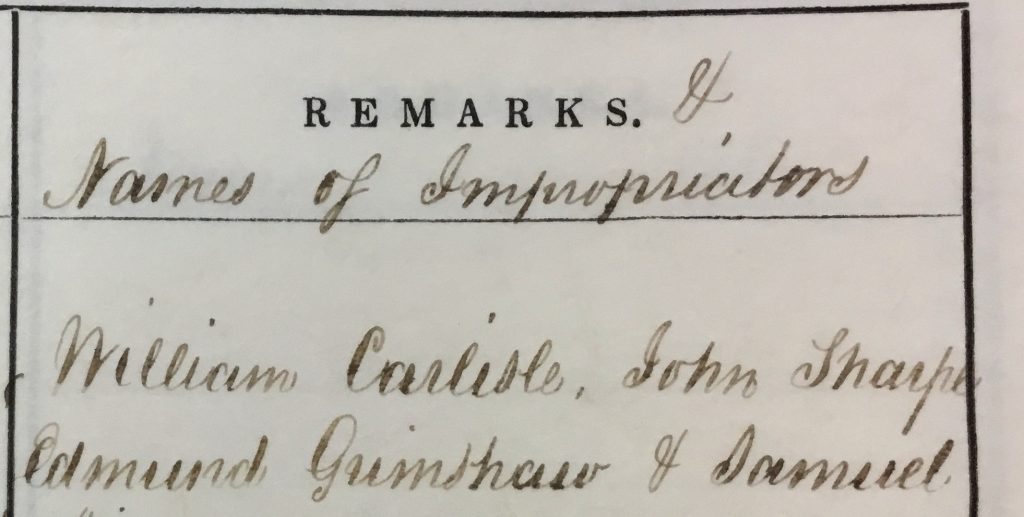 REMARKS. &
Names of Impropriators
William Carlisle, John Sharpe
Edmund Grimshaw & Samuel